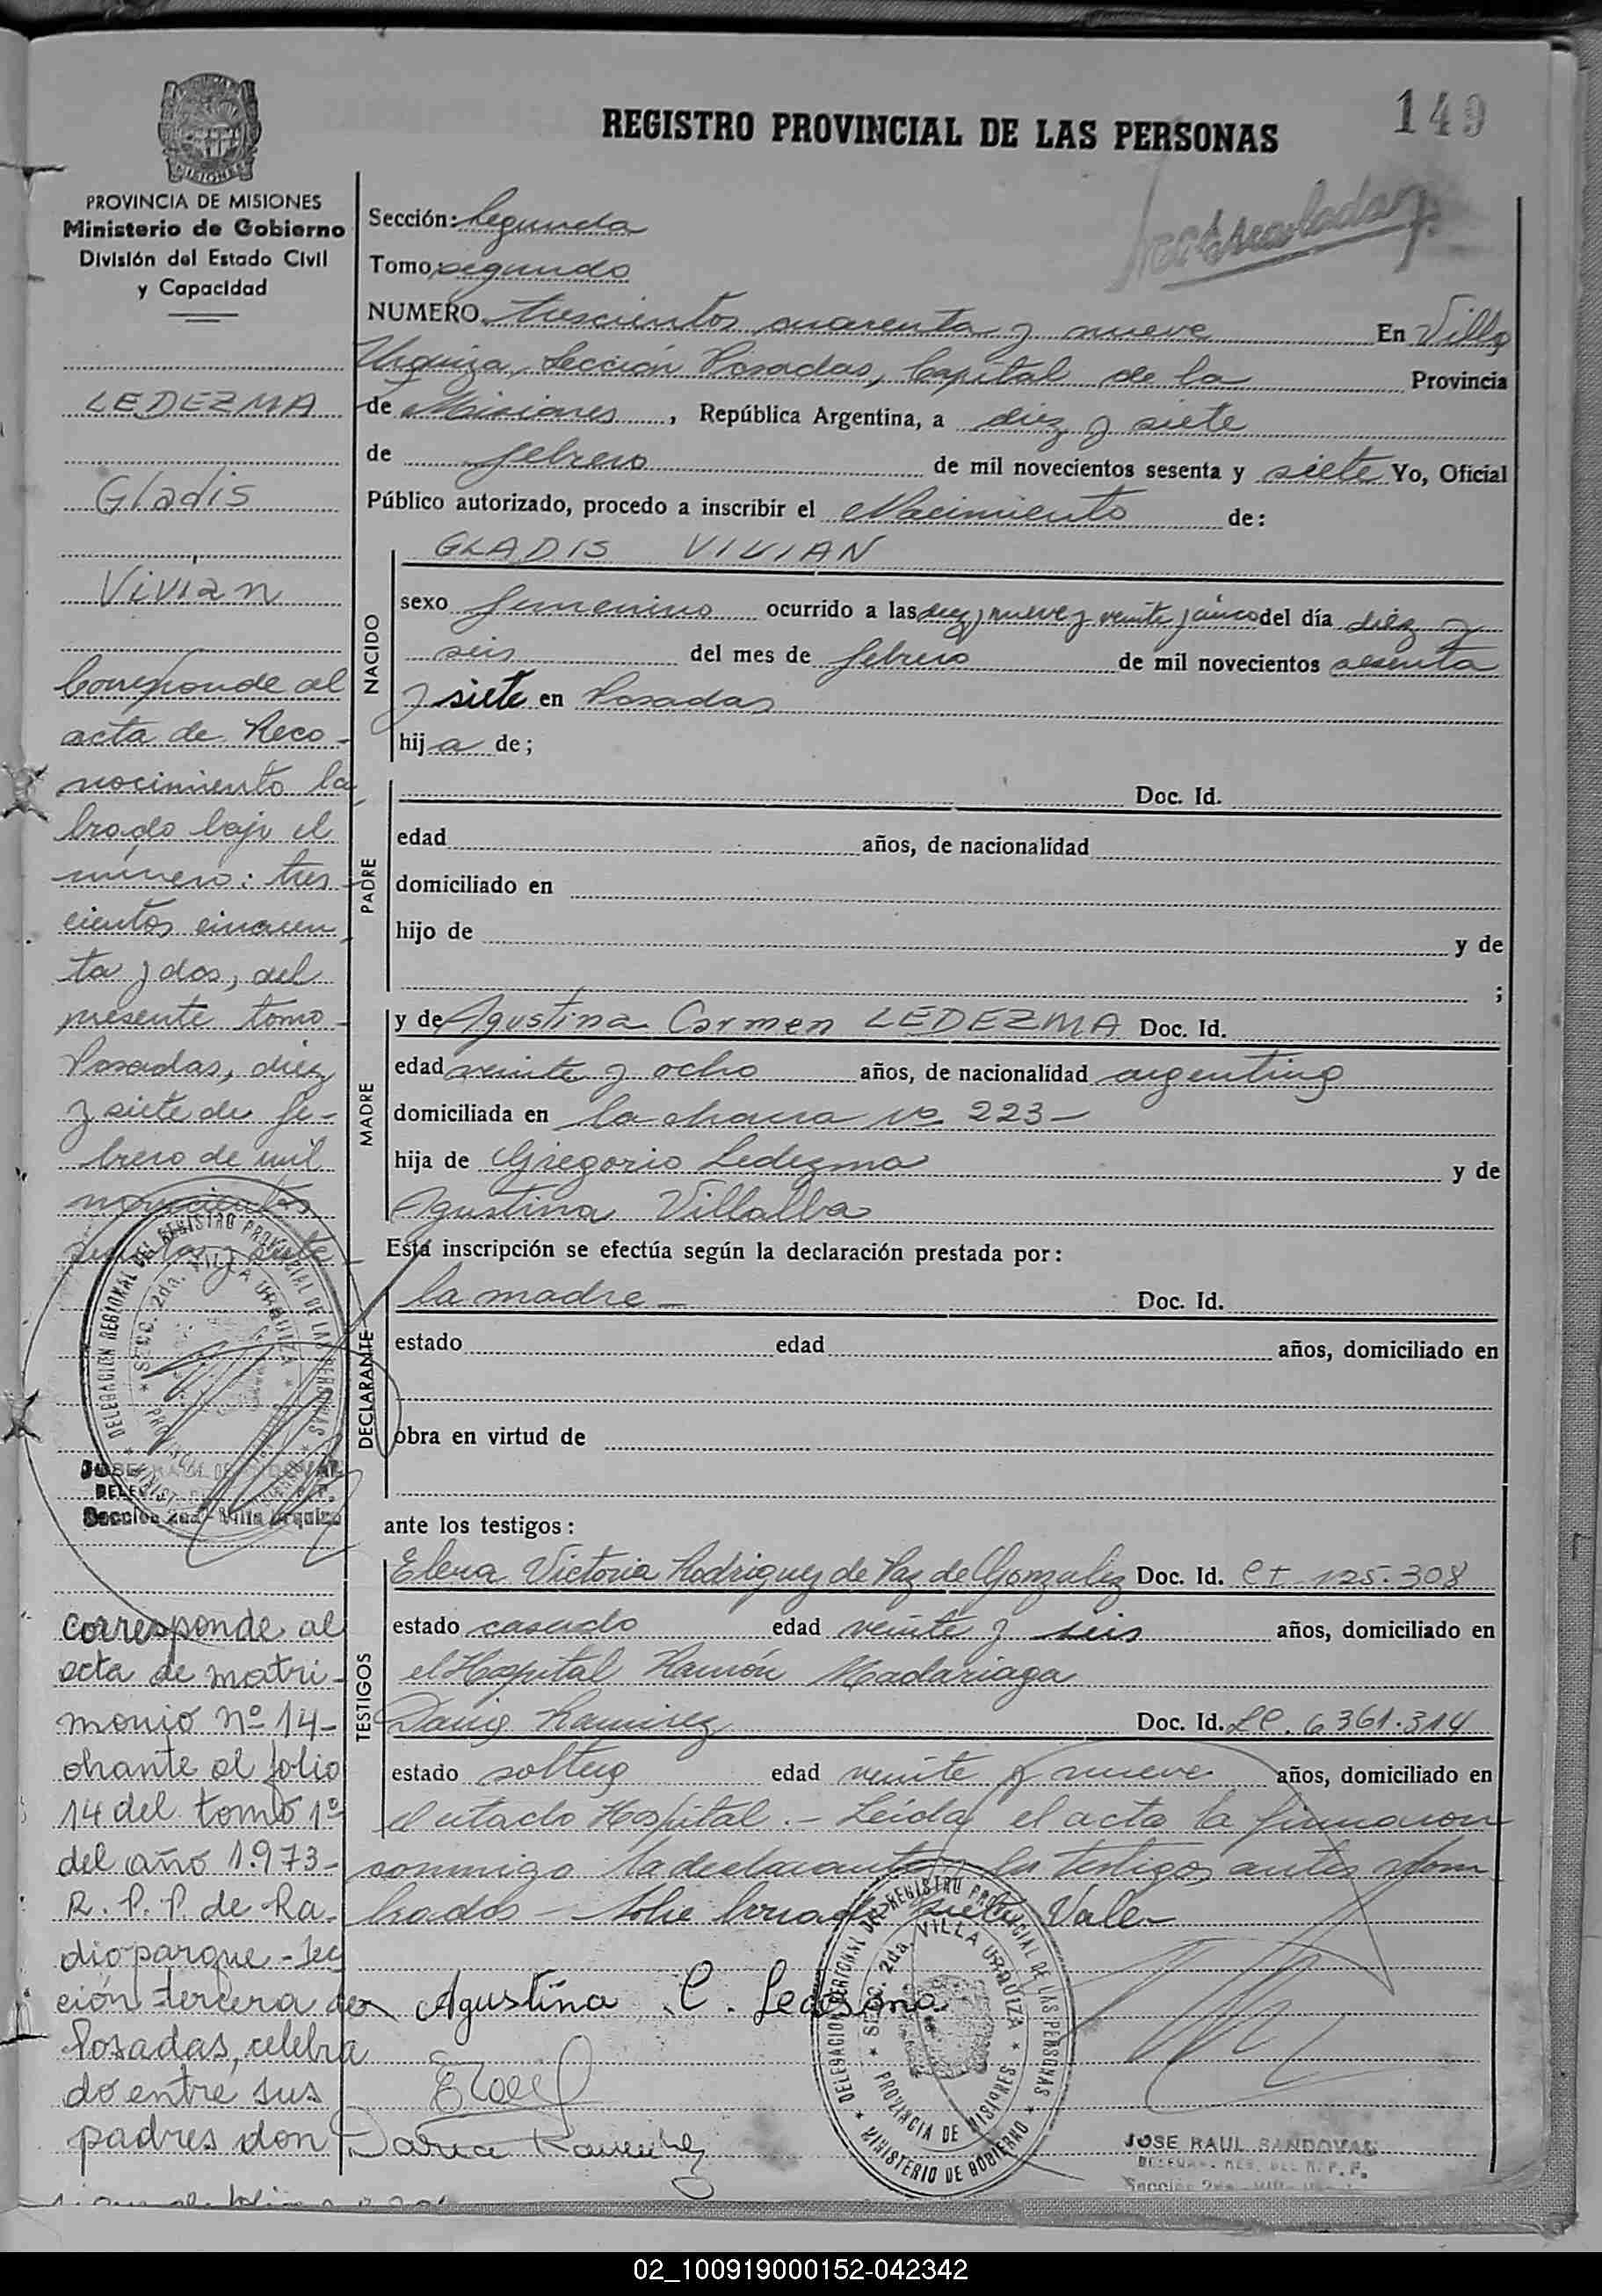 149
REGISTRO PROVINCIAL DE LAS PERSONAS
MISIONES
PROVINCIA DE MISIONES
Ministerio de Gobierno
División del Estado Civil
y Capacidad
LEDEZMA
Gladis
Vivian
Corresponde al
acta de Reco-
nocimiento la
brado bajo el
número: tres-
cientos cincuen
ta y dos, del
presente tomo-
Posadas, diez
y siete de fe-
brero de mil
novecientos
sesenta y siete-
DELEGACION REGIONAL DEL REGISTRO PROVINCIAL DE LAS PERSONAS
SECC. 2da. VILLA URQUIZA
JOSE RAUL SANDOVAL
Sección 2da - Villa Urquiza
corresponde al
acta de matri-
monio nº 14-
obrante al folio
14 del tomo 1º
del año 1.973-
R. P. P. de Ra-
dioparque - Sec
ción tercera de
Posadas, celebra
do entre sus
padres don
Sección: Segunda
Tomo segundo
NUMERO trescientos cuarenta y nueve En Villa
Urquiza, Sección Posadas, Capital de la Provincia
de Misiones, República Argentina, a diez y siete
de febrero de mil novecientos sesenta y siete Yo, Oficial
Público autorizado, procedo a inscribir el Nacimiento de:
NACIDO
GLADIS VIVIAN
sexo femenino ocurrido a las diez y nueve y veinte y cinco del día diez y
seis del mes de febrero de mil novecientos sesenta
y siete en Posadas
hija de;
PADRE
Doc. Id.
edad años, de nacionalidad
domiciliado en
hijo de y de
;
MADRE
y de Agustina Carmen LEDEZMA Doc. Id.
edad veinte y ocho años, de nacionalidad argentina
domiciliada en la chacra nº 223-
hija de Gregorio Ledezma y de
Agustina Villalba
Esta inscripción se efectúa según la declaración prestada por:
DECLARANTE
la madre- Doc. Id.
estado edad años, domiciliado en
obra en virtud de
ante los testigos:
TESTIGOS
Elena Victoria Rodriguez de Paz de Gonzalez Doc. Id. 125.308
estado casado edad veinte y seis años, domiciliado en
el Hospital Ramón Madariaga
Ramirez Doc. Id. LC. 6.361.314
estado soltera edad veinte y nueve años, domiciliado en
el citado Hospital.- Leída el acta la firmaron
conmigo la declarante y los testigos antes nom
brados - Sobre borrado: siete Vale-
Agustina C. Ledesma
Ramirez
DELEGACION REGIONAL DEL REGISTRO PROVINCIAL DE LAS PERSONAS
SECC. 2da. VILLA URQUIZA
PROVINCIA DE MISIONES
MINISTERIO DE GOBIERNO
JOSE RAUL SANDOVAL
02_100919000152-042342